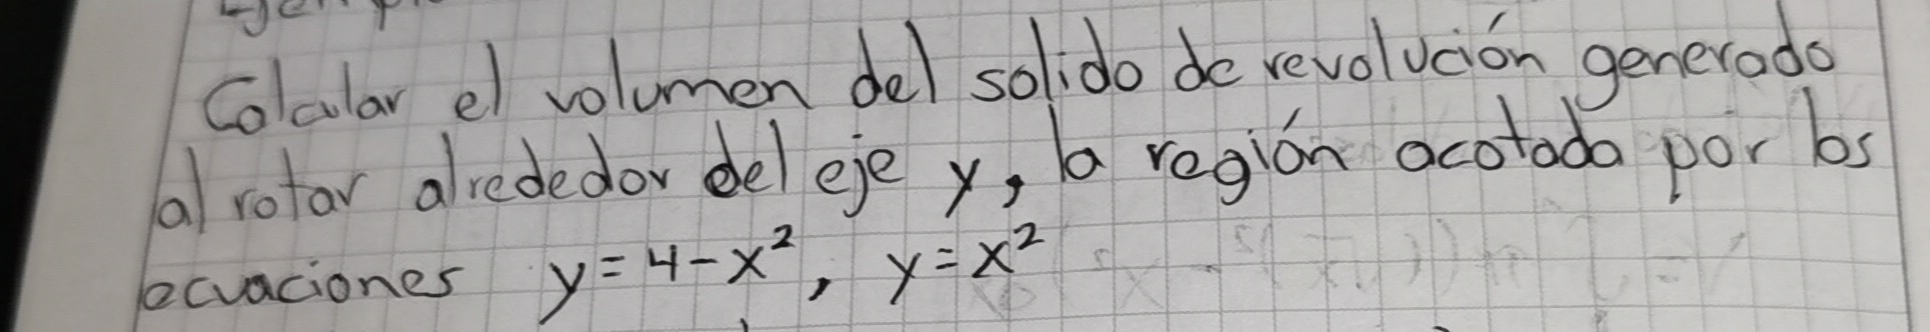 Calcular el volumen del solido de revolución generado
al rotar alrededor del eje y, la región acotada por las
ecuaciones y = 4 - x², y = x²